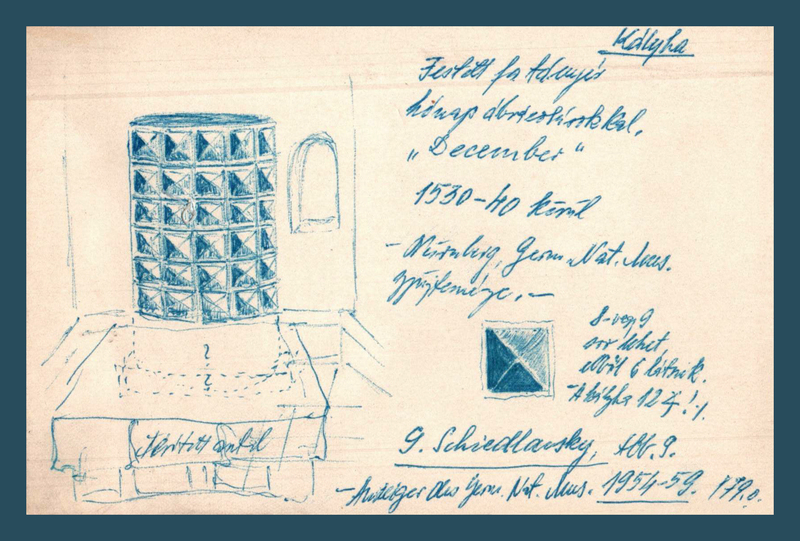 Kályha
Festett fa tányér
hónap ábrázolásokkal,
„December"
1530-40 körül
- Nürnberg, Germ. Nat. Mus.
gyűjteménye. -
8-vagy 9
sor lehet,
ebből 6 látszik.
- A kályha 12 !
?
?
terített asztal
G. Schiedlausky, Abb. 9.
- Anzeiger des Germ. Nat. Mus. 1954-59. 179. o.